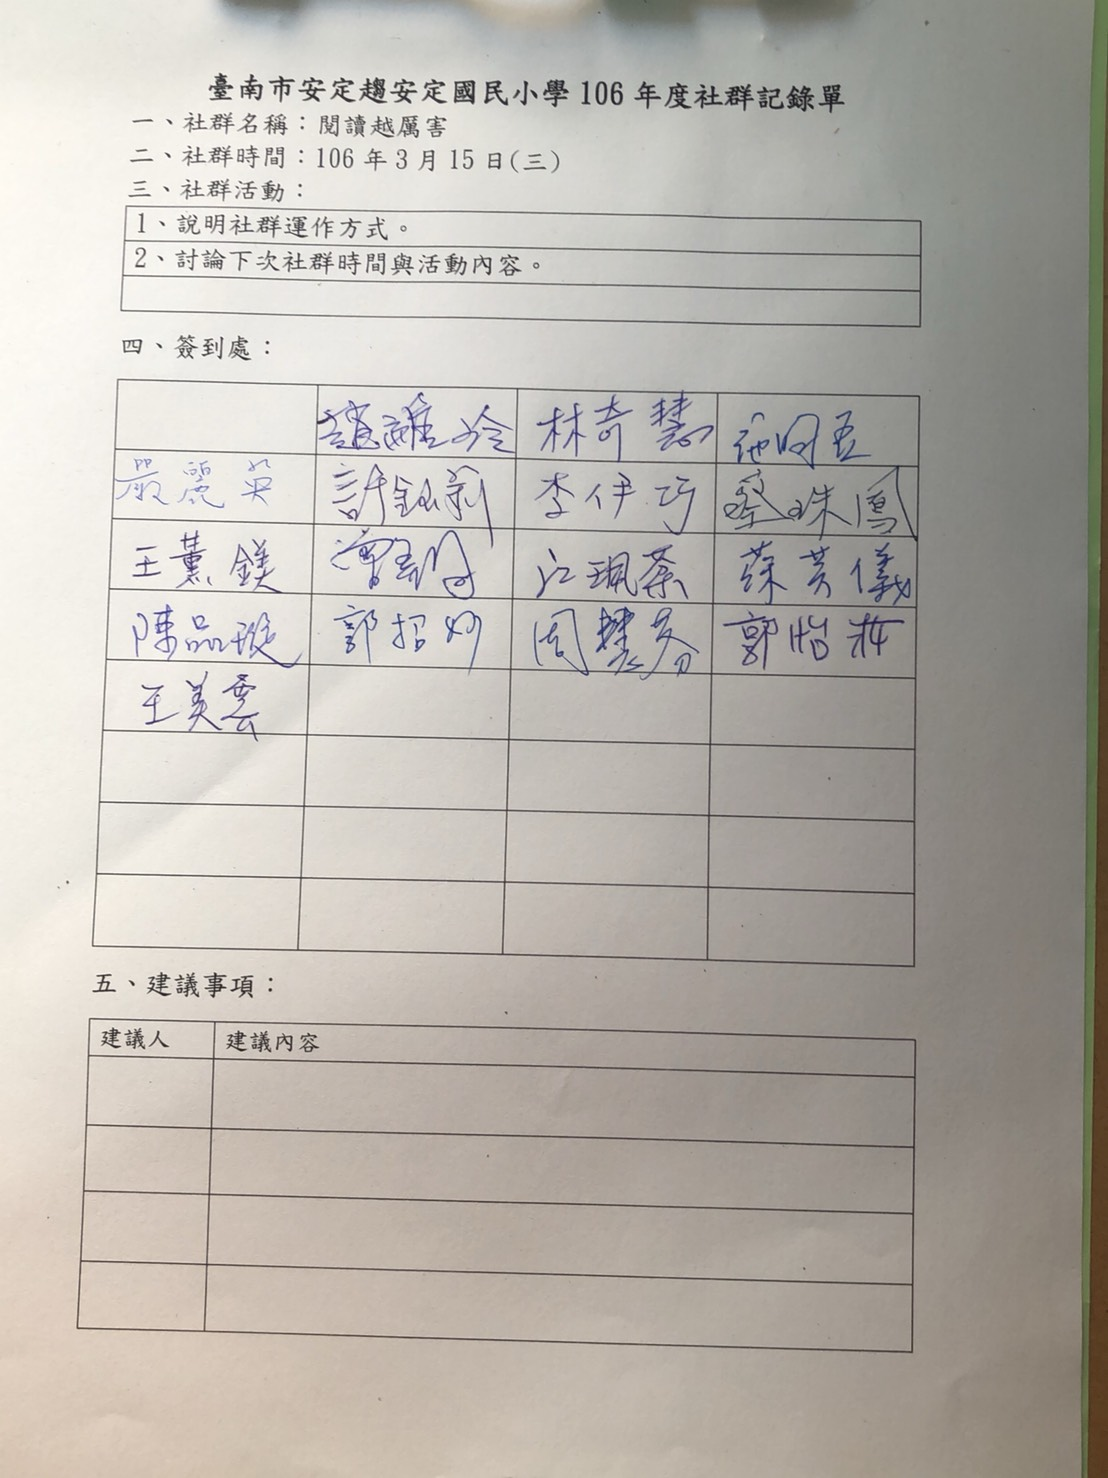 臺南市安定趨安定國民小學 106 年度社群記錄單
一、社群名稱：閱讀越厲害
二、社群時間：106 年 3 月 15 日(三)
三、社群活動：
1、說明社群運作方式。
2、討論下次社群時間與活動內容。
四、簽到處：
趙 玲 林奇慧
嚴麗英 許鈺莉 李伊巧 蔡珠鳳
王薰鎂 曾 江珮蓁 蘇芳儀
陳品璇 郭招妙 周慧芬 郭怡
王美雲
五、建議事項：
建議人 建議內容